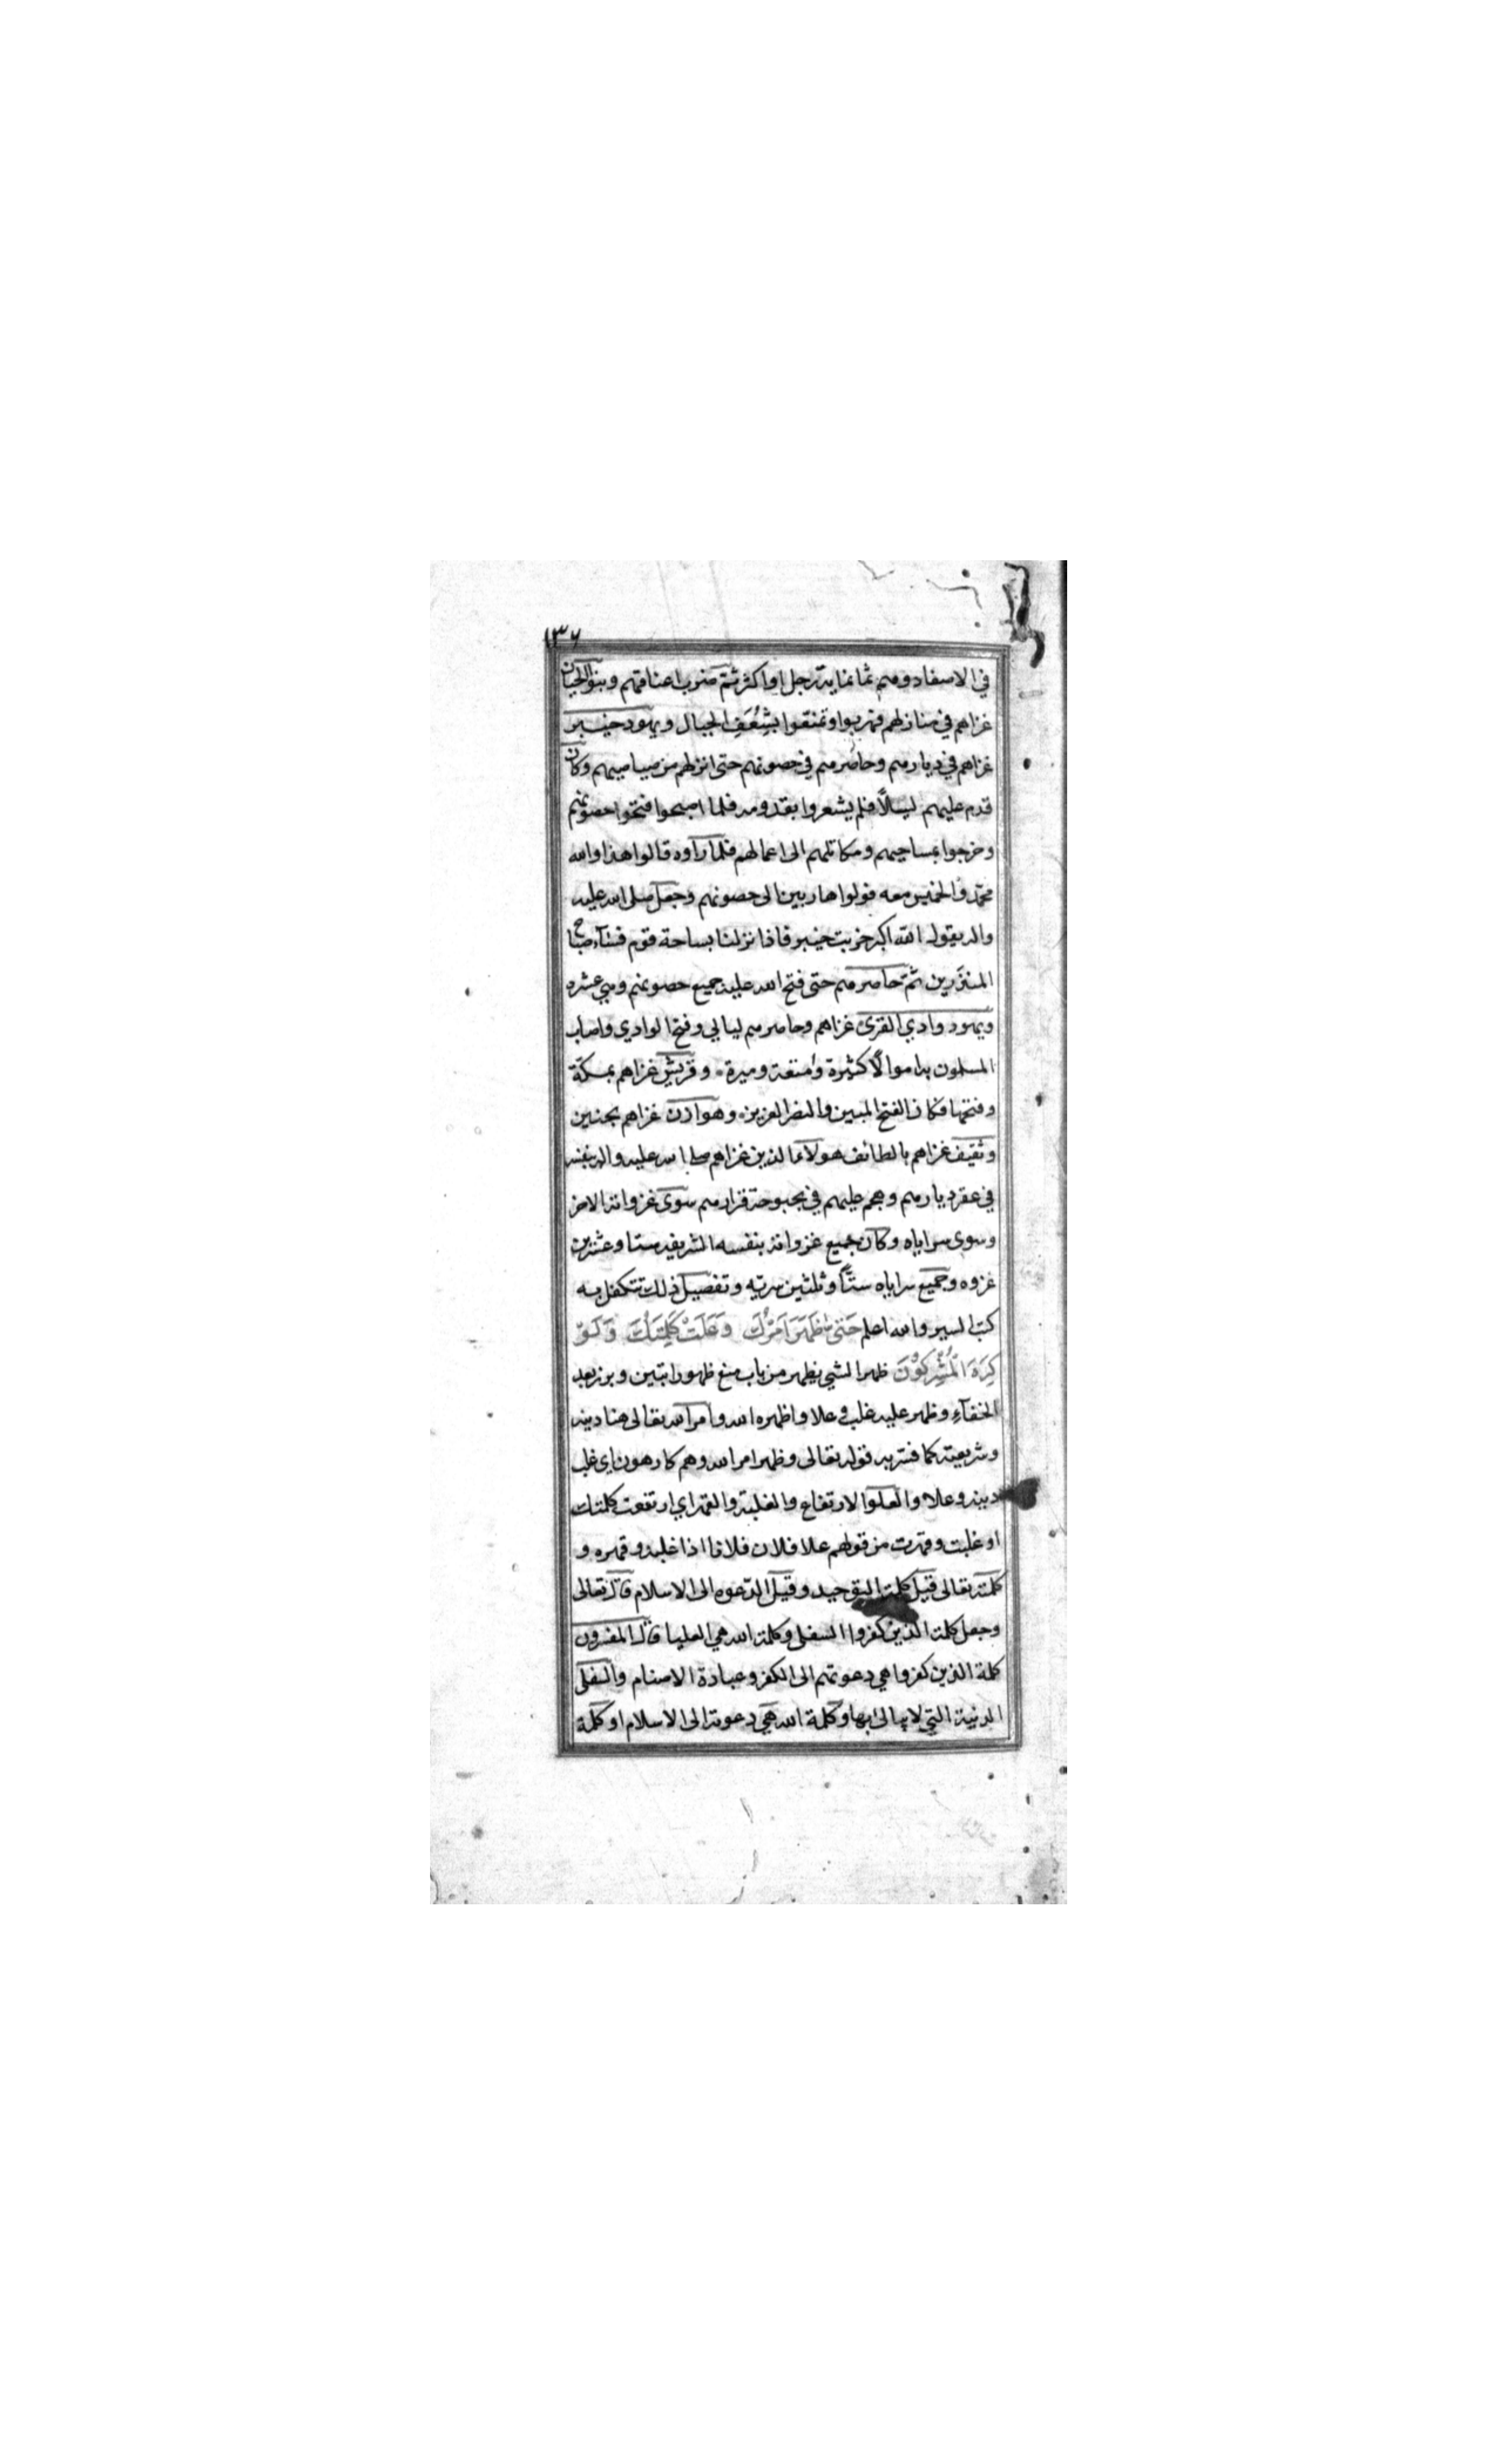 ١٣٦
في الاصفاد وهم ثمانماية رجل او اكثر ثم ضرب اعناقهم وبنو لحيان
غزاهم في منازلهم فهربوا وتمنعوا بشعف الجبال ويهود خيبر
غزاهم في ديارهم وحاصرهم في حصونهم حتى انزلهم من صياصيهم وكان
قدم عليهم ليلاً فلم يشعروا بقدومه فلما اصبحوا فتحوا حصونهم
وخرجوا بمساحيهم ومكاتلهم الى اعمالهم فلما رآوه قالوا هذا والله
محمد والخميس معه فولوا هاربين الى حصونهم وجعل صلى الله عليه
واله يقول الله اكبر خربت خيبر فاذا نزلنا بساحة قوم فسآء صباح
المنذرين ثم حاصرهم حتى فتح الله عليه جميع حصونهم وهي عشره
ويهود وادي القرى غزاهم وحاصرهم ليالي وفتح الوادي واصاب
المسلمون به اموالاً كثيرة وامتعة وميرة وقريش غزاهم بمكة
وفتحها فكان الفتح المبين والنصر العزيز وهوازن غزاهم بحنين
وثقيف غزاهم بالطائف هولآء الذين غزاهم صلى الله عليه واله بنفسه
في عقر ديارهم وهجم عليهم في بحبوحة قرارهم سوى غزواته الاخر
وسوى سراياه وكان جميع غزواته بنفسه الشريفه ستا وعشرين
غزوه وجميع سراياه ستاً وثلثين سريه وتفصيل ذلك تتكفل به
كتب السير والله اعلم حَتى ظَهَرَ اَمْرُكَ وَعَلَتْ كَلِمَتُكَ وَلَوْ
كَرِهَ الْمُشْرِكُوْنَ ظهر الشيي يظهر من باب منع ظهورا تبين وبرز بعد
الخفآء وظهر عليه غلب وعلا واظهره الله وامر الله تعالى هنا دينه
وشريعته كما فسر به قوله تعالى وظهر امر الله وهم كارهون اي غلب
دينه وعلا والعلو الارتفاع والغلبة والقهر اي ارتفعت كلمتك
او غلبت وقهرت من قولهم علا فلان فلانا اذا غلبه وقهره و
كلمته تعالى قيل كلمة التوحيد وقيل الدعوه الى الاسلام قال تعالى
وجعل كلمة الذين كفروا السفلى وكلمة الله هي العليا قال المفسرون
كلمة الذين كفروا هي دعوتهم الى الكفر وعبادة الاصنام والسفلى
الدنية التي لا يبالى بها وكلمة الله هي دعوته الى الاسلام او كلمة